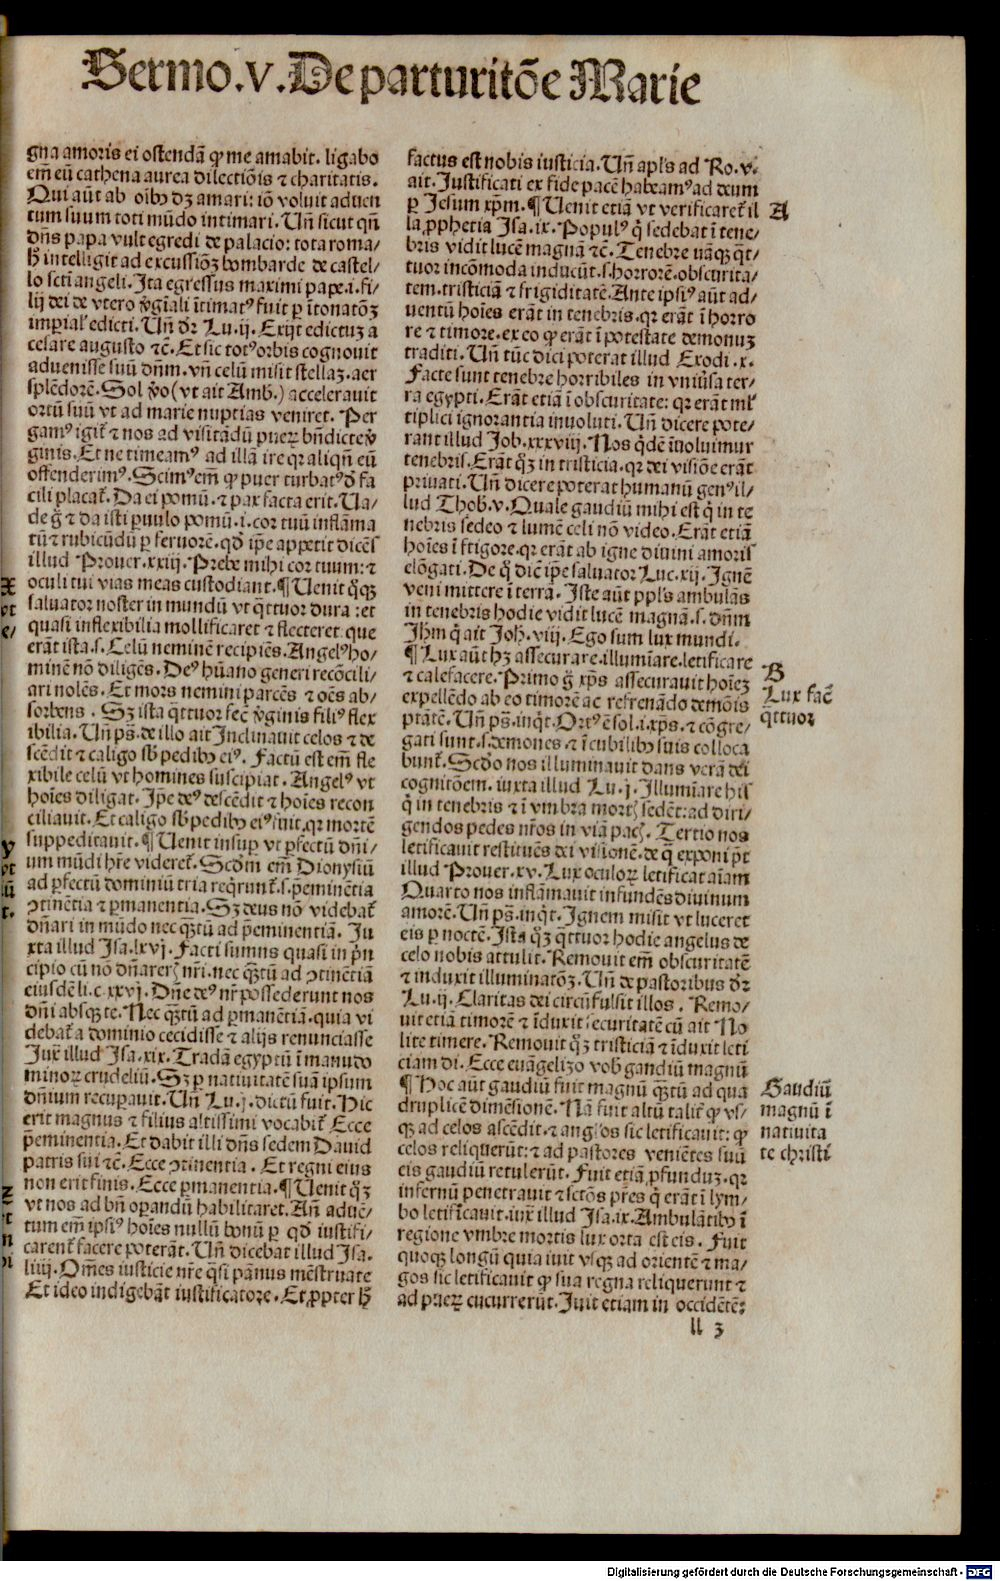 Sermo.V. De parturitõe Marie
gna amoris ei ostendã ꝙ me amabit. ligabo
em̃ eũ cathena aurea dilectiõis ⁊ charitatis.
Qui aũt ab oĩbꝰ dꝫ amari: iõ voluit aduen
tum suum toti mũdo intimari. Uñ sicut qñ
dñs papa vult egredi de palacio: tota roma⸗
ꝧ intelligit ad excussiõꝫ bombarde de castel⸗
lo scti angeli. Ita egressus maximi pape.i.fi⸗
lij dei de vtero v̓giñali ĩtimatꝰ fuit ꝑ ĩtonatõꝫ
imperial̓ edicti. Uñ dr̃ Lu.ij. Exijt edictuꝫ a
cesare augusto ⁊c̃. Et sic totꝰ orbis cognouit
aduenisse suũ dñm. vñ celũ misit stellaꝫ. aer
splẽdorẽ. Sol v̓o (vt ait Amb.) accelerauit
ortũ suũ vt ad marie nuptias veniret. Per
gamꝰ igit̃ ⁊ nos ad visitãdũ pueꝝ bñdicte v̓
ginis. Et ne timeamꝰ ad illã ire qꝛ aliqñ eũ
offenderimꝰ. Scimꝰ em̃ ꝙ puer turbatꝰ d̓ fa
cili placat̃. Da ei pomũ. ⁊ pax facta erit. Ua⸗
de g̊ ⁊ da isti ꝑuulo pomũ.i. cor tuũ inflãma
tũ ⁊ rubicũdũ ꝑ feruorẽ. qd̓ ip̃e appetit dicẽs
illud Prouer.xxiij. Prebe mihi cor tuum: ⁊
oculi tui vias meas custodiant. ¶ Uenit q̊ꝫ
saluator noster in mundũ vt q̃ttuor dura : et
quasi inflexibilia mollificaret ⁊ flecteret que
erãt ista.s. Celũ neminẽ recipiẽs. Angelꝰ ho⸗
minẽ nõ diligẽs. Deꝰ hũano generi recõcili⸗
ari nolẽs. Et mors nemini parcẽs ⁊ oẽs ab⸗
sorbens . Sꝫ ista q̃ttuor fec̃ v̓ginis filiꝰ flex
ibilia. Uñ ps̃. de illo ait Inclinauit celos ⁊ de
scẽdit ⁊ caligo sb̓ pedibꝰ eiꝰ. Factũ est em̃ fle
xibile celũ vt homines suscipiat. Angelꝰ vt
hoĩes diligat. Ip̃e deꝰ descẽdit ⁊ hoĩes recon
ciliauit. Et caligo sb̓ pedibꝰ eiꝰ fuit. qꝛ mortẽ
suppeditauit. ¶ Uenit insuꝑ vt ꝑfectũ dñi⸗
um mũdi hr̃e videret̃. Scd̓m em̃ Dionysiũ
ad ꝑfectũ dominiũ tria req̃runt̃.s. p̃eminẽtia
ꝯtinẽtia ⁊ ꝑmanentia. Sꝫ deus nõ videbat̃
dñari in mũdo nec q̃ꝫtũ ad p̃eminentiã. Iu
xta illud Isa.lxvj. Facti sumus quasi in p̃n
cipio cũ nõ dñarerꝭ nr̃i. nec q̃ꝫtũ ad ꝯtinẽtiã
eiusdẽ li.c.xxvj. Dñe deꝰ nr̃ possederunt nos
dñi absqꝫ te. Nec q̃ꝫtũ ad ꝑmanẽtiã. quia vi
debat̃ a dominio cecidisse ⁊ alijs renunciasse
Iux̃ illud Isa.xix. Tradã egyptũ ĩ manudo
minoꝝ crudeliũ. Sꝫ ꝑ natiuitatẽ suã ipsum
dñium recuꝑauit. Uñ Lu.j. dictũ fuit. Hic
erit magnus ⁊ filius altissimi vocabit̃ Ecce
p̃eminentia. Et dabit illi dñs sedem Dauid
patris sui ⁊c̃. Ecce ꝯtinentia . Et regni eius
non erit finis. Ecce ꝑmanentia. ¶ Uenit q̊ꝫ
vt nos ad bñ oꝑandũ habilitaret. Añ aduẽ⸗
tum em̃ ipsiꝰ hoĩes nullũ bonũ ꝑ qd̓ iustifi⸗
carent̃ facere poterãt. Uñ dicebat illud Isa.
liiij. Om̃es iusticie nr̃e q̃si pãnus mẽstruate
Et ideo indigebãt iustificatore. Et ꝓpter ꝧ
factus est nobis iusticia. Uñ apl̃s ad Ro.v.
ait. Iustificati ex fide pacẽ habeamꝰ ad deum
ꝑ Jesum xp̃m. ¶ Uenit etiã vt verificaret̃ il
la ꝓphetia Isa.ix. Populꝰ q̃ sedebat ĩ tene⸗
bris vidit lucẽ magnã ⁊c̃. Tenebre nãqꝫ q̃t⸗
tuor incõmoda inducũt.s. horrorẽ. obscurita⸗
tem. tristiciã ⁊ frigiditatẽ. Ante ipsiꝰ aũt ad⸗
uentũ hoĩes erãt in tenebris. qꝛ erãt ĩ horro
re ⁊ timore. ex eo ꝙ erãt ĩ potestate demonuꝫ
traditi. Uñ tũc dici poterat illud Exodi.x.
Facte sunt tenebre horribiles in vniũsa ter⸗
ra egypti. Erãt etiã ĩ obscuritate: qꝛ erãt ml̓
tiplici ignorantia inuoluti. Uñ dicere pote⸗
rant illud Job.xxxvij. Nos q̃dẽ ĩuoluimur
tenebris. Erãt q̊ꝫ in tristicia. qꝛ dei visiõe erãt
priuati. Uñ dicere poterat humanũ genꝰ il⸗
lud Thob.v. Quale gaudiũ mihi est q̃ in te
nebris sedeo ⁊ lumẽ celi nõ video. Erãt etiã
hoĩes ĩ frigore. qꝛ erãt ab igne diuini amoris
elõgati. De q̊ dic̃ ip̃e saluator Luc.xij. Ignẽ
veni mittere ĩ terrã. Iste aũt ppl̃s ambulãs
in tenebris hodie vidit lucẽ magnã.s. dñm
Jhm̃ q̃ ait Joh̃.viij. Ego sum lux mundi.
¶ Lux aũt hꝫ assecurare. illumĩare. letificare
⁊ calefacere. Primo g̊ xp̃s assecurauit hoĩeꝫ
expellẽdo ab eo timorẽ ac refrenãdo demõis
ptãtẽ. Uñ ps̃. inq̃t. Ortꝰ ẽ sol.i. xp̃s. ⁊ cõgre⸗
gati sunt.s. demones. ⁊ ĩ cubilibꝰ suis colloca
bunt̃. Scd̓o nos illuminauit dans verã dei
cognitõem. iuxta illud Lu.j. Illumĩare his
q̃ in tenebris ⁊ ĩ vmbra mortꝭ sedẽt: ad diri⸗
gendos pedes nr̃os in viã pacꝭ. Tertio nos
letificauit restituẽs dei visionẽ. de q̃ exponi p̃t
illud Prouer.xv. Lux oculoꝝ letificat aĩam
Quarto nos inflãmauit infundẽs diuinum
amorẽ. Uñ ps̃. inq̃t. Ignem misit vt luceret
eis ꝑ noctẽ. Ista q̊ꝫ q̃ttuor hodie angelus de
celo nobis attulit. Remouit em̃ obscuritatẽ
⁊ induxit illuminatõꝫ. Uñ de pastoribus dr̃
Lu.ij. Claritas dei circũfulsit illos . Remo⸗
uit etiã timorẽ ⁊ ĩduxit securitatẽ cũ ait No
lite timere. Remouit q̊ꝫ tristiciã ⁊ ĩduxit leti
ciam di. Ecce euãgelizo vob̓ gandiũ magnũ
¶ Hoc aũt gaudiũ fuit magnũ q̃ꝫtũ ad qua
druplicẽ dimẽsionẽ. Nã fuit altũ talit̃ ꝙ vs⸗
qꝫ ad celos ascẽdit. ⁊ angl̓os sic letificauit: ꝙ
celos reliquerũt: ⁊ ad pastores veniẽtes suũ
eis gaudiũ retulerũt. Fuit etiã ꝓfunduꝫ. qꝛ
infernũ penetrauit ⁊ sctõs pr̃es q̃ erãt ĩ lym⸗
bo letificauit. iux̃ illud Isa.ix. Ambulãtibꝰ ĩ
regione vmbre mortis lux orta est eis. Fuit
quoqꝫ longũ quia iuit vsqꝫ ad orientẽ ⁊ ma⸗
gos sic letificauit ꝙ sua regna reliquerunt ⁊
ad pueꝝ cucurrerũt. Iuit etiam in occidẽtẽ:
ll 3
A
B
Lux fac̃
q̃ttuor
Gaudiũ
magnũ ĩ
natiuita
te christi